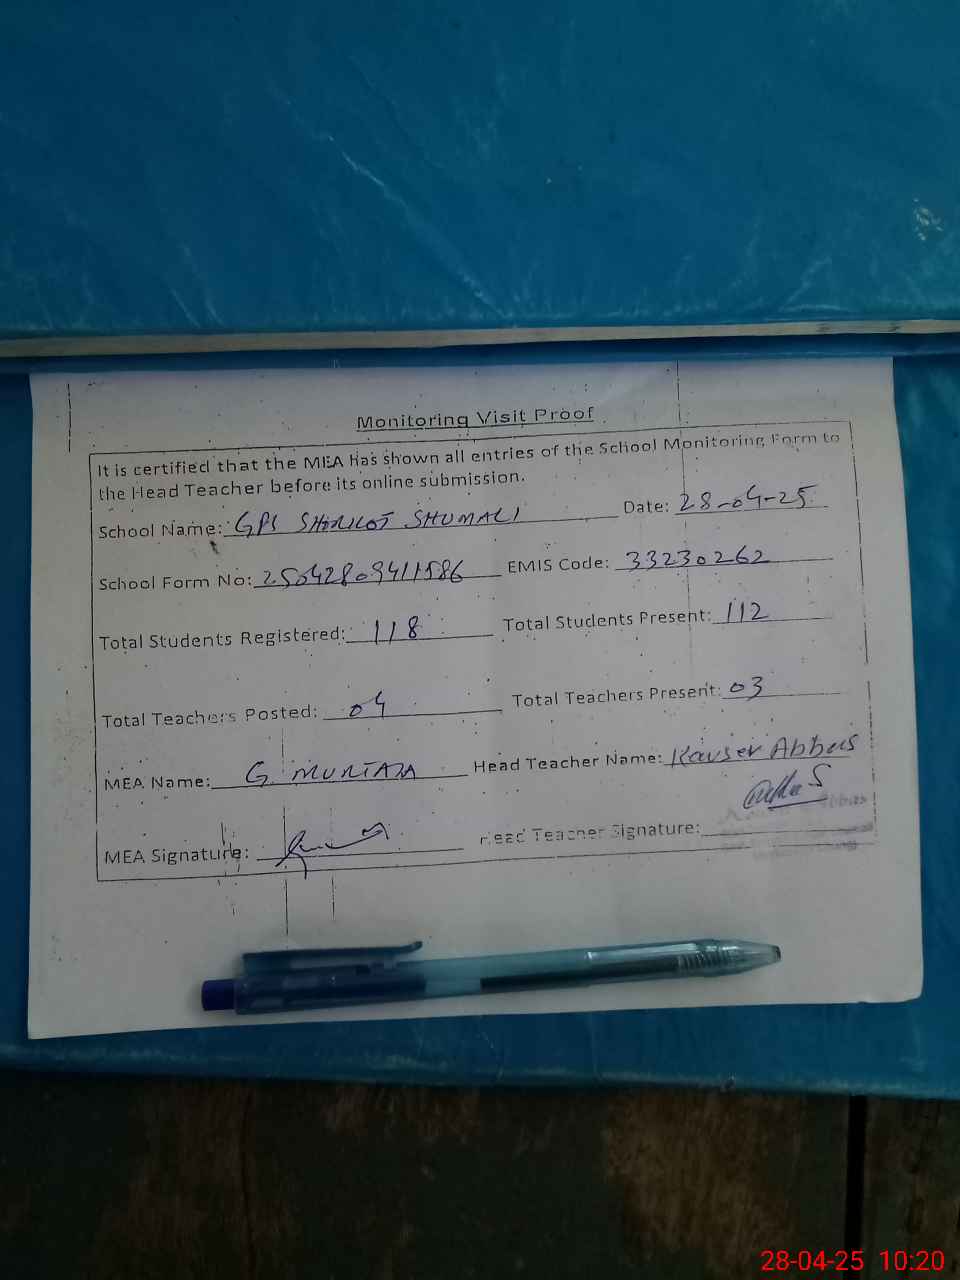 Monitoring Visit Proof
It is certified that the MEA has shown all entries of the School Monitoring Form to
the Head Teacher before its online submission.
School Name: GPS SHORKOT SHUMALI Date: 28-04-25
School Form No: 25042809411586 EMIS Code: 33230262
Total Students Registered: 118 Total Students Present: 112
Total Teachers Posted: 04 Total Teachers Present: 03
MEA Name: G. MURTAZA Head Teacher Name: Kavser Abbas
MEA Signature: Head Teacher Signature:
28-04-25 10:20